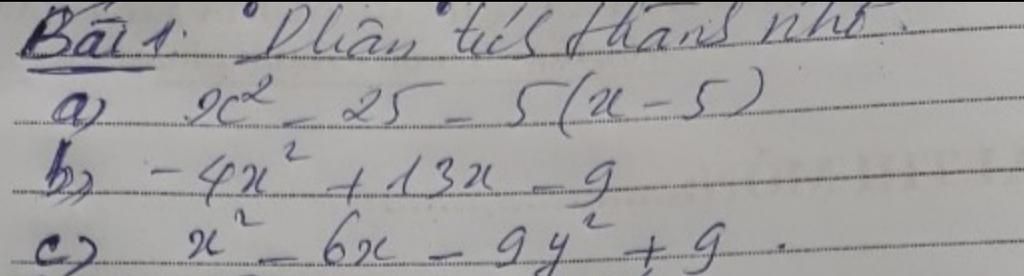 Bài 1: Phân tích thành nhtử.
a) x² - 25 - 5(x - 5)
b) -4x² + 13x - 9
c) x² - 6x - 9y² + 9.